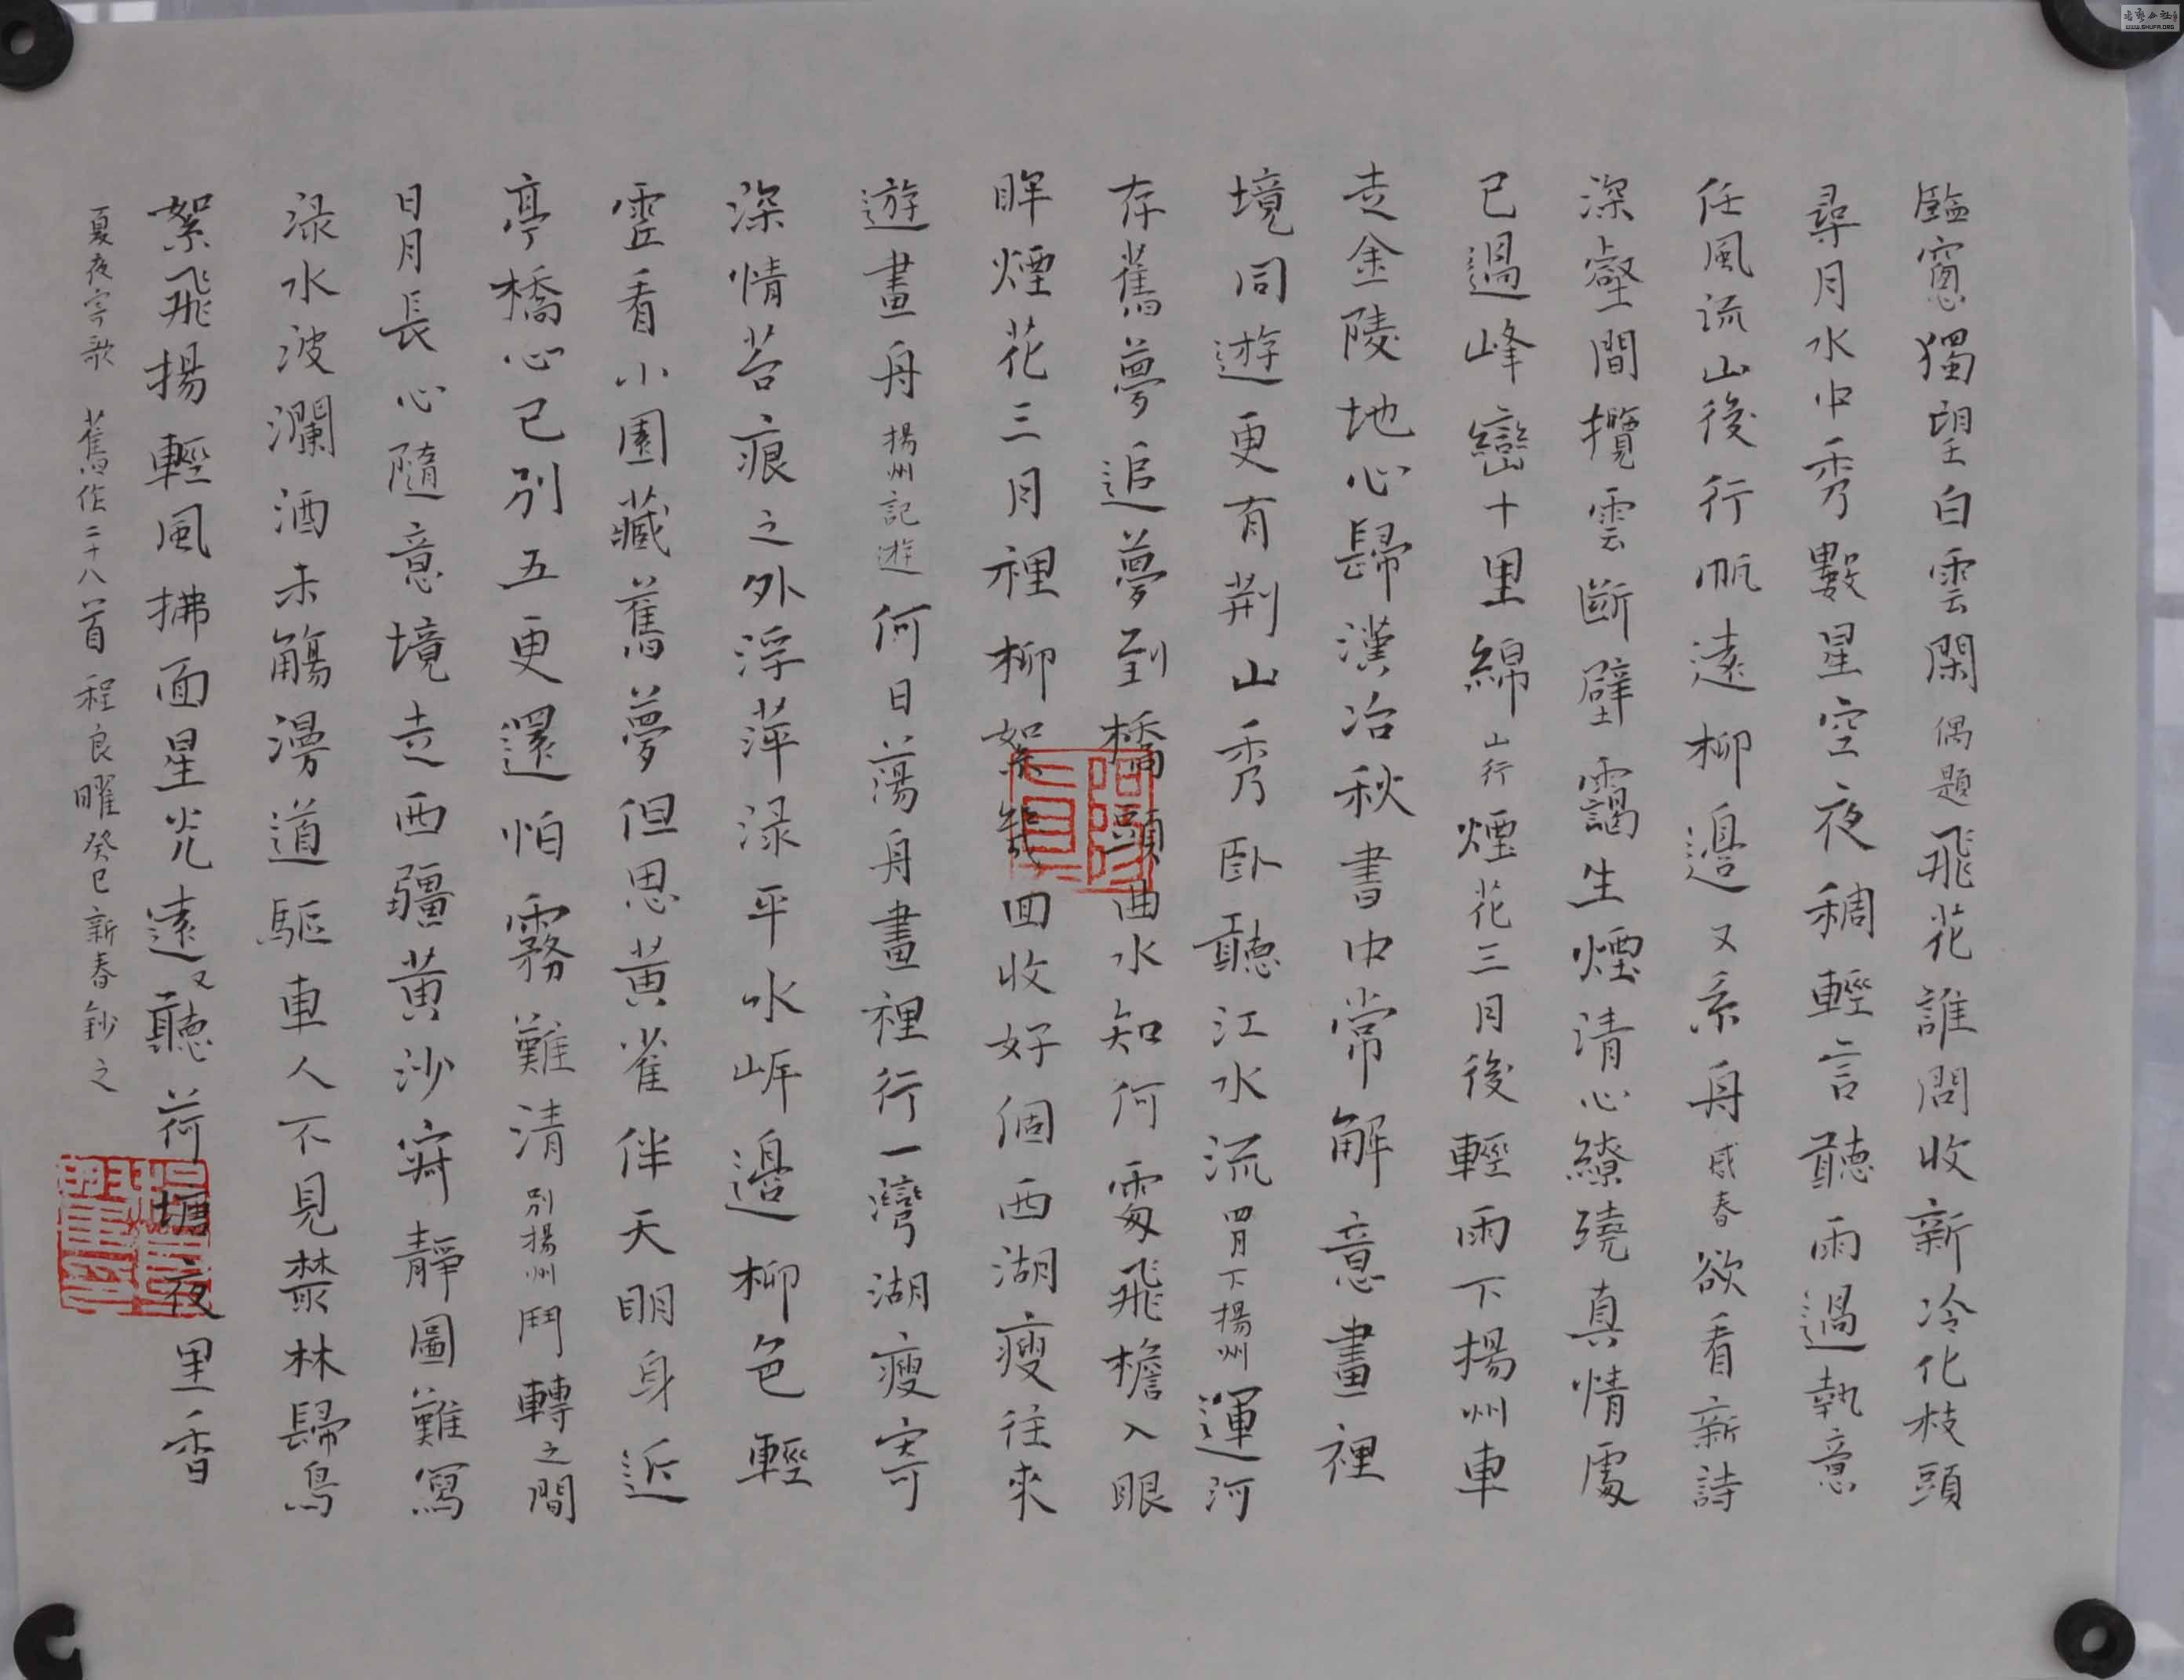 臨窻獨望白雲閑偶題飛花誰問收新冷化枝頭
尋月水中秀數星空夜稠輕言聽雨過執意
任風流山後行帆遠柳邊又系舟感春欲看新詩
深壑間攬雲斷壁靄生煙清心繚繞真情處
已過峰巒十里綿山行煙花三月後輕雨下揚州車
走金陵地心歸漢冶秋書中常解意畫裡
境同遊更有荆山秀卧聽江水流四月下揚州運河
存舊夢追夢到橋頭曲水知何處飛檐入眼
眸煙花三月裡柳絮幾回收好個西湖瘦往來
遊畫舟揚州記遊何日蕩舟畫裡行一灣湖瘦寄
深情苔痕之外浮萍淥平水岸邊柳色輕
雲看小園藏舊夢但思黄雀伴天明身近
亭橋心已别五更還怕霧難清别揚州鬥轉之間
日月長心隨意境走西疆黄沙寂靜圖難寫
淥水波瀾酒未觴漫道驅車人不見叢林歸鳥
絮飛揚輕風拂面星光遠又聽荷塘夜里香
夏夜寄歌 舊作二十八首 程良曜癸巳新春鈔之
WWW.SHUFA.ORG